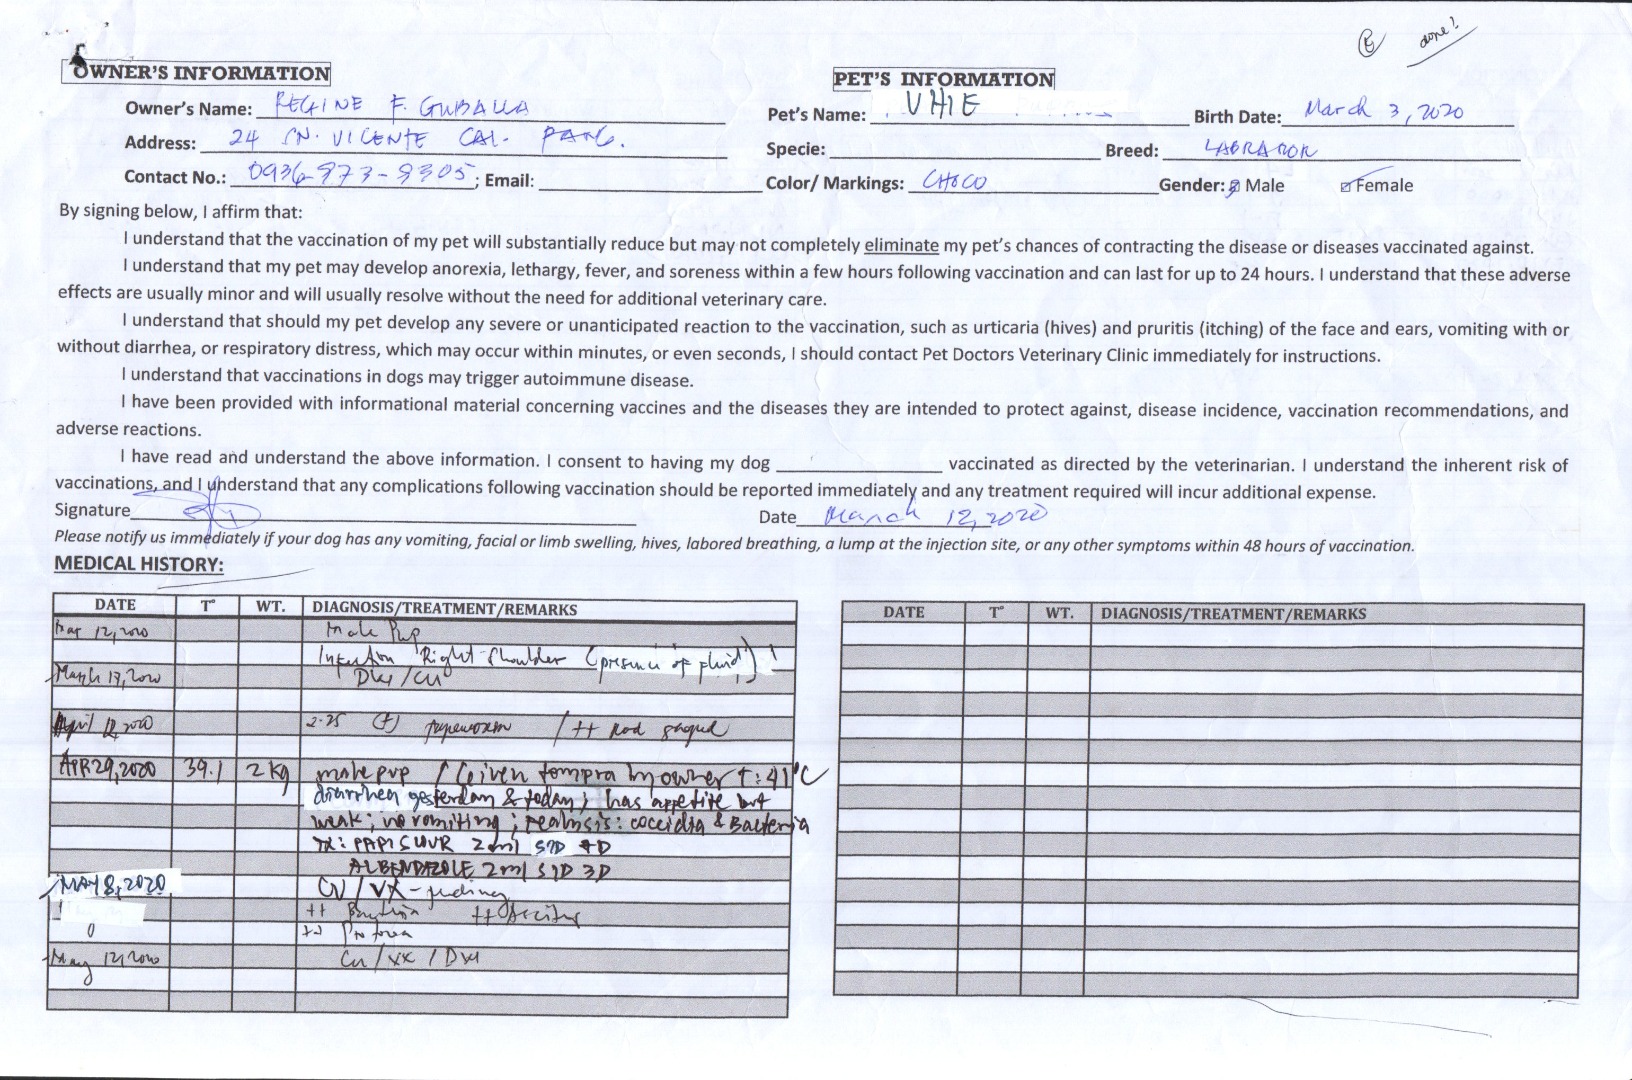 done!
OWNER'S INFORMATION
PET'S INFORMATION
Owner's Name: REGINE F. GUBALLA
Pet's Name: VHIE
Birth Date: March 3, 2020
Address: 24 SN. VICENTE CAL. PANG.
Specie:
Breed: LABRADOR
Contact No.: ; Email:
Color/ Markings: CHOCO
Gender: Male Female
By signing below, I affirm that:
I understand that the vaccination of my pet will substantially reduce but may not completely eliminate my pet's chances of contracting the disease or diseases vaccinated against.
I understand that my pet may develop anorexia, lethargy, fever, and soreness within a few hours following vaccination and can last for up to 24 hours. I understand that these adverse
effects are usually minor and will usually resolve without the need for additional veterinary care.
I understand that should my pet develop any severe or unanticipated reaction to the vaccination, such as urticaria (hives) and pruritis (itching) of the face and ears, vomiting with or
without diarrhea, or respiratory distress, which may occur within minutes, or even seconds, I should contact Pet Doctors Veterinary Clinic immediately for instructions.
I understand that vaccinations in dogs may trigger autoimmune disease.
I have been provided with informational material concerning vaccines and the diseases they are intended to protect against, disease incidence, vaccination recommendations, and
adverse reactions.
I have read and understand the above information. I consent to having my dog vaccinated as directed by the veterinarian. I understand the inherent risk of
vaccinations, and I understand that any complications following vaccination should be reported immediately and any treatment required will incur additional expense.
Signature
Date March 12, 2020
Please notify us immediately if your dog has any vomiting, facial or limb swelling, hives, labored breathing, a lump at the injection site, or any other symptoms within 48 hours of vaccination.
MEDICAL HISTORY:
DATE T° WT. DIAGNOSIS/TREATMENT/REMARKS
DATE T° WT. DIAGNOSIS/TREATMENT/REMARKS
Mar 12, 2020 Male Pup
Right Shoulder (presence of fluid)
March 17, 2020
April 2020 2.25 (+) / ++ rod shaped
APR 29, 2020 39.1 2 kg male pup / Given tempra by owner T: 41°C
diarrhea yesterday & today; has appetite but
weak; no vomiting; : coccidia & Bacteria
TX: 2 ml SID 7D
ALBENDAZOLE 2 ml SID 3D
MAY 8, 2020 CN / VX - pending
++ ++
++
May 12, 2020